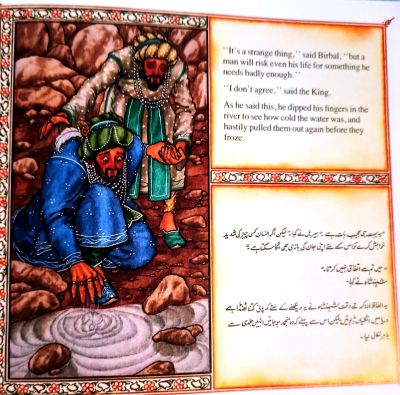 "It's a strange thing," said Birbal, "but a
man will risk even his life for something he
needs badly enough."
"I don't agree," said the King.
As he said this, he dipped his fingers in the
river to see how cold the water was, and
hastily pulled them out again before they
froze.
"یہ بہت ہی عجیب بات ہے۔" بیربل نے کہا۔ "لیکن اگر انسان کسی چیز کی شدید
خواہش کرے تو اس کے لئے اپنی جان کی بازی بھی لگا سکتا ہے۔"
"میں تم سے اتفاق نہیں کرتا۔"
شہنشاہ نے کہا۔
یہ الفاظ ادا کرتے وقت شہنشاہ نے یہ دیکھنے کے لئے کہ پانی کتنا ٹھنڈا ہے
دریا میں انگلیاں ڈبوئیں لیکن اس سے پہلے کہ وہ منجمد ہو جائیں انہیں جلدی سے
باہر نکال لیا۔